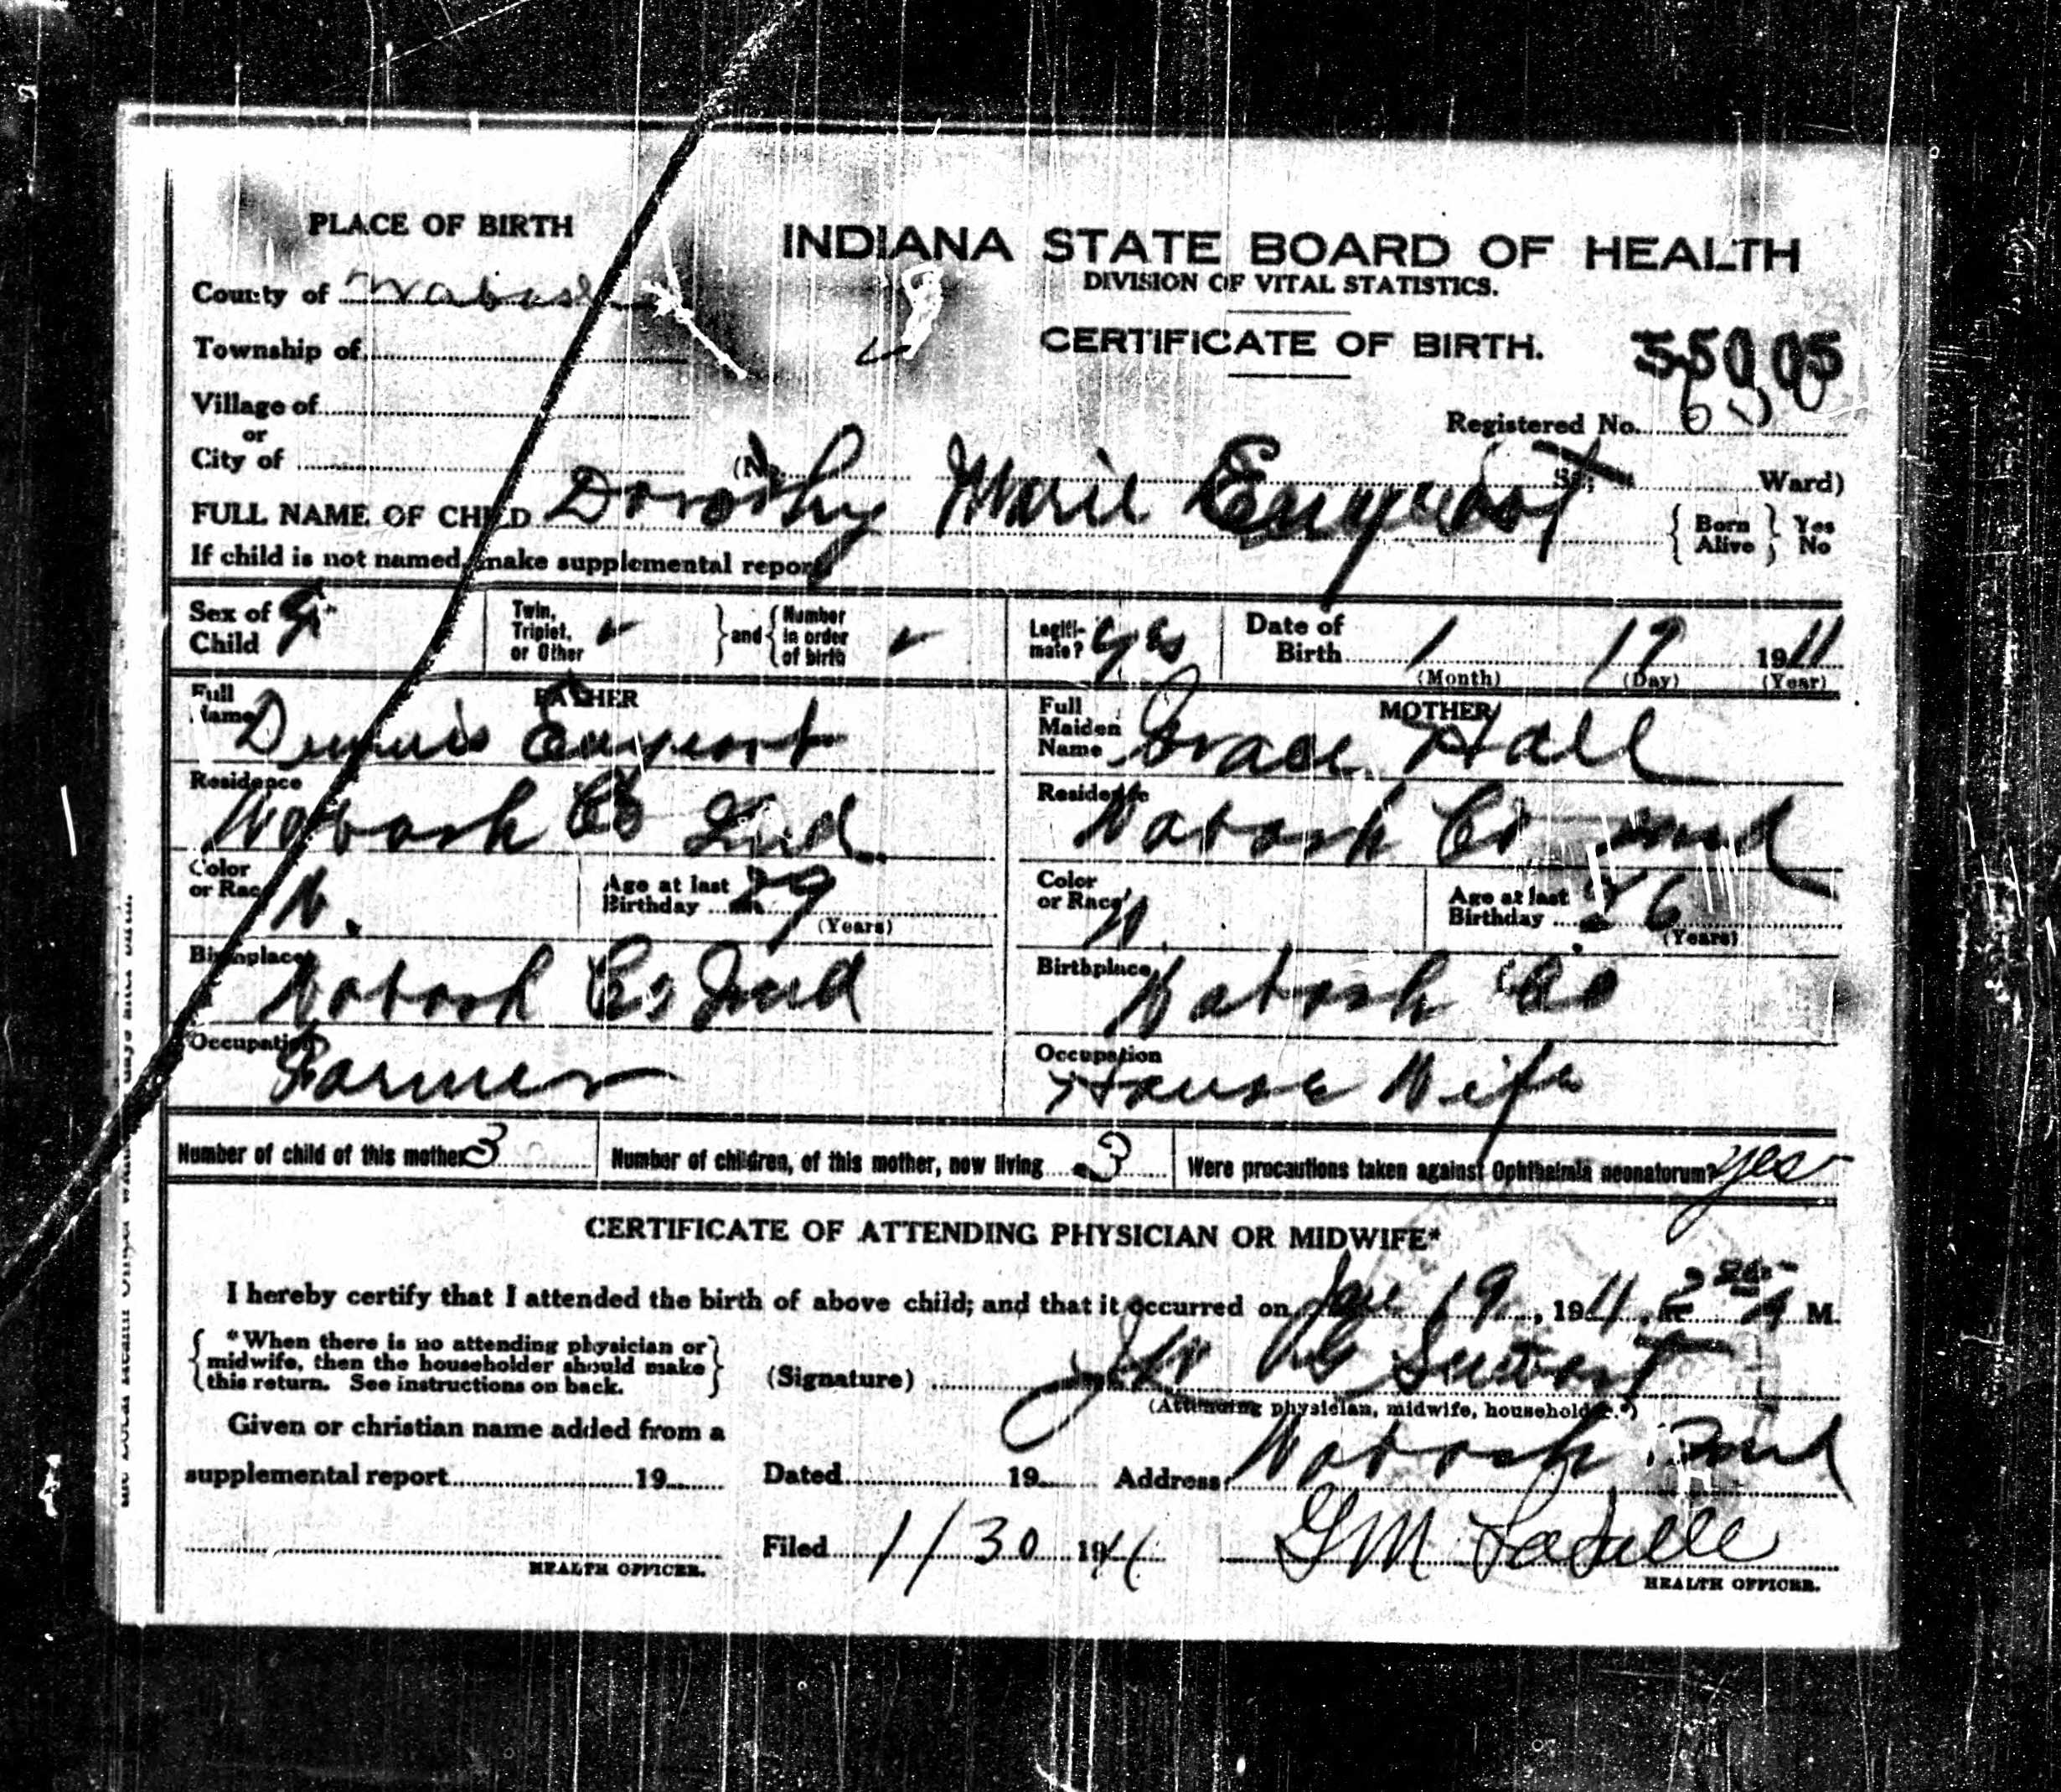 PLACE OF BIRTH
County of Wabash
Township of
Village of
or
City of
INDIANA STATE BOARD OF HEALTH
DIVISION OF VITAL STATISTICS.
CERTIFICATE OF BIRTH.
Registered No.
(No. St.; Ward)
FULL NAME OF CHILD Dorothy Marie { Born Alive } Yes No
If child is not named, make supplemental report
Sex of Child G. Twin, Triplet, or Other } and { Number in order of birth Legiti-mate? yes Date of Birth 1 19 1911
(Month) (Day) (Year)
FATHER
Full Name Dennis
Residence
Wabash Co Ind
Color or Race W. Age at last Birthday 29 (Years)
Birthplace
Wabash Co Ind
Occupation
Farmer
MOTHER
Full Maiden Name Grace Hall
Residence
Wabash Co Ind
Color or Race W. Age at last Birthday 26 (Years)
Birthplace
Wabash Co
Occupation
House Wife
Number of child of this mother 3 Number of children, of this mother, now living 3 Were precautions taken against Ophthalmia neonatorum? yes
CERTIFICATE OF ATTENDING PHYSICIAN OR MIDWIFE*
I hereby certify that I attended the birth of above child; and that it occurred on Jan 19, 1911, at 2 A M.
{ *When there is no attending physician or
midwife, then the householder should make
this return. See instructions on back. }
(Signature)
(Attending physician, midwife, householder.*)
Given or christian name added from a
supplemental report 19
Dated 19 Address Wabash Ind
Filed 1/30 1911 G M
HEALTH OFFICER.
HEALTH OFFICER.